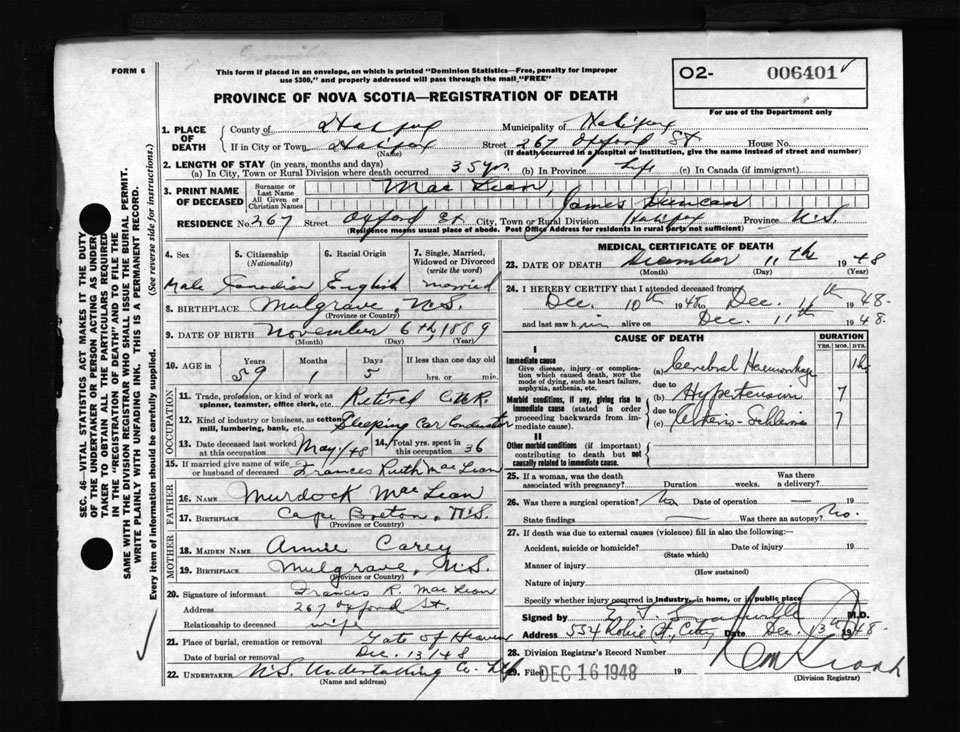 FORM 6
This form if placed in an envelope, on which is printed "Dominion Statistics—Free, penalty for improper
use $300," and properly addressed will pass through the mail "FREE"
O2- 006401
For use of the Department only
PROVINCE OF NOVA SCOTIA—REGISTRATION OF DEATH
SEC. 46—VITAL STATISTICS ACT MAKES IT THE DUTY
OF THE UNDERTAKER OR PERSON ACTING AS UNDER-
TAKER TO OBTAIN ALL THE PARTICULARS REQUIRED
IN THE "REGISTRATION OF DEATH" AND TO FILE THE
SAME WITH THE DIVISION REGISTRAR WHO SHALL ISSUE THE BURIAL PERMIT.
WRITE PLAINLY WITH UNFADING INK. THIS IS A PERMANENT RECORD.
Every item of information should be carefully supplied. (See reverse side for instructions.)
1. PLACE OF DEATH
County of Halifax Municipality of Halifax
If in City or Town Halifax Street 267 Oxford St House No.
(Name) (If death occurred in a hospital or institution, give the name instead of street and number)
2. LENGTH OF STAY (in years, months and days)
(a) In City, Town or Rural Division where death occurred 35 yrs (b) In Province Life (c) In Canada (if immigrant)
3. PRINT NAME OF DECEASED
Surname or Last Name MacLean,
All Given or Christian Names James Duncan
RESIDENCE No. 267 Street Oxford St City, Town or Rural Division Halifax Province N.S.
(Residence means usual place of abode. Post Office Address for residents in rural parts not sufficient)
4. Sex 5. Citizenship (Nationality) 6. Racial Origin 7. Single, Married, Widowed or Divorced (write the word)
Male Canadian English married
8. BIRTHPLACE Mulgrave, N.S.
(Province or Country)
9. DATE OF BIRTH November 6th, 1889
(Month) (Day) (Year)
10. AGE in Years Months Days If less than one day old
59 1 5 hrs. or min.
OCCUPATION
11. Trade, profession, or kind of work as spinner, teamster, office clerk, etc. Retired C.N.R.
12. Kind of industry or business, as cotton mill, lumbering, bank, etc. Sleeping Car Conductor
13. Date deceased last worked at this occupation May/48 14. Total yrs. spent in this occupation 36
15. If married give name of wife or husband of deceased Frances Ruth MacLean
FATHER
16. NAME Murdock MacLean
17. BIRTHPLACE Cape Breton, N.S.
(Province or Country)
MOTHER
18. MAIDEN NAME Annie Carey
19. BIRTHPLACE Mulgrave, N.S.
(Province or Country)
20. Signature of informant Frances R. MacLean
Address 267 Oxford St.
Relationship to deceased wife
21. Place of burial, cremation or removal Gate of Heaven
Date of burial or removal Dec. 13/48
22. UNDERTAKER N.S. Undertaking Co. Ltd
(Name and address)
MEDICAL CERTIFICATE OF DEATH
23. DATE OF DEATH December 11th 1948
(Month) (Day) (Year)
24. I HEREBY CERTIFY that I attended deceased from
Dec. 10th 1948 to Dec. 11th 1948.
and last saw him alive on Dec. 11th 1948.
CAUSE OF DEATH DURATION
YRS. MOS. DYS.
I
Immediate cause
Give disease, injury or complication which caused death, not the mode of dying, such as heart failure, asphyxia, asthenia, etc.
(a) Cerebral Haemorrhage
due to
Morbid conditions, if any, giving rise to immediate cause (stated in order proceeding backwards from immediate cause).
(b) Hypertension 7
due to
(c) Arterio-Sclerosis 7
II
Other morbid conditions (if important) contributing to death but not causally related to immediate cause.
25. If a woman, was the death associated with pregnancy? Duration weeks. Was there a delivery?
26. Was there a surgical operation? No Date of operation —
State findings — Was there an autopsy? No.
27. If death was due to external causes (violence) fill in also the following:
Accident, suicide or homicide? Date of injury 19
(State which)
Manner of injury
(How sustained)
Nature of injury
Specify whether injury occurred in industry, in home, or in public place
Signed by M.D.
Address 554 Robie St, City Date Dec. 13th 1948.
28. Division Registrar's Record Number
29. Filed DEC 16 1948 19
(Division Registrar)